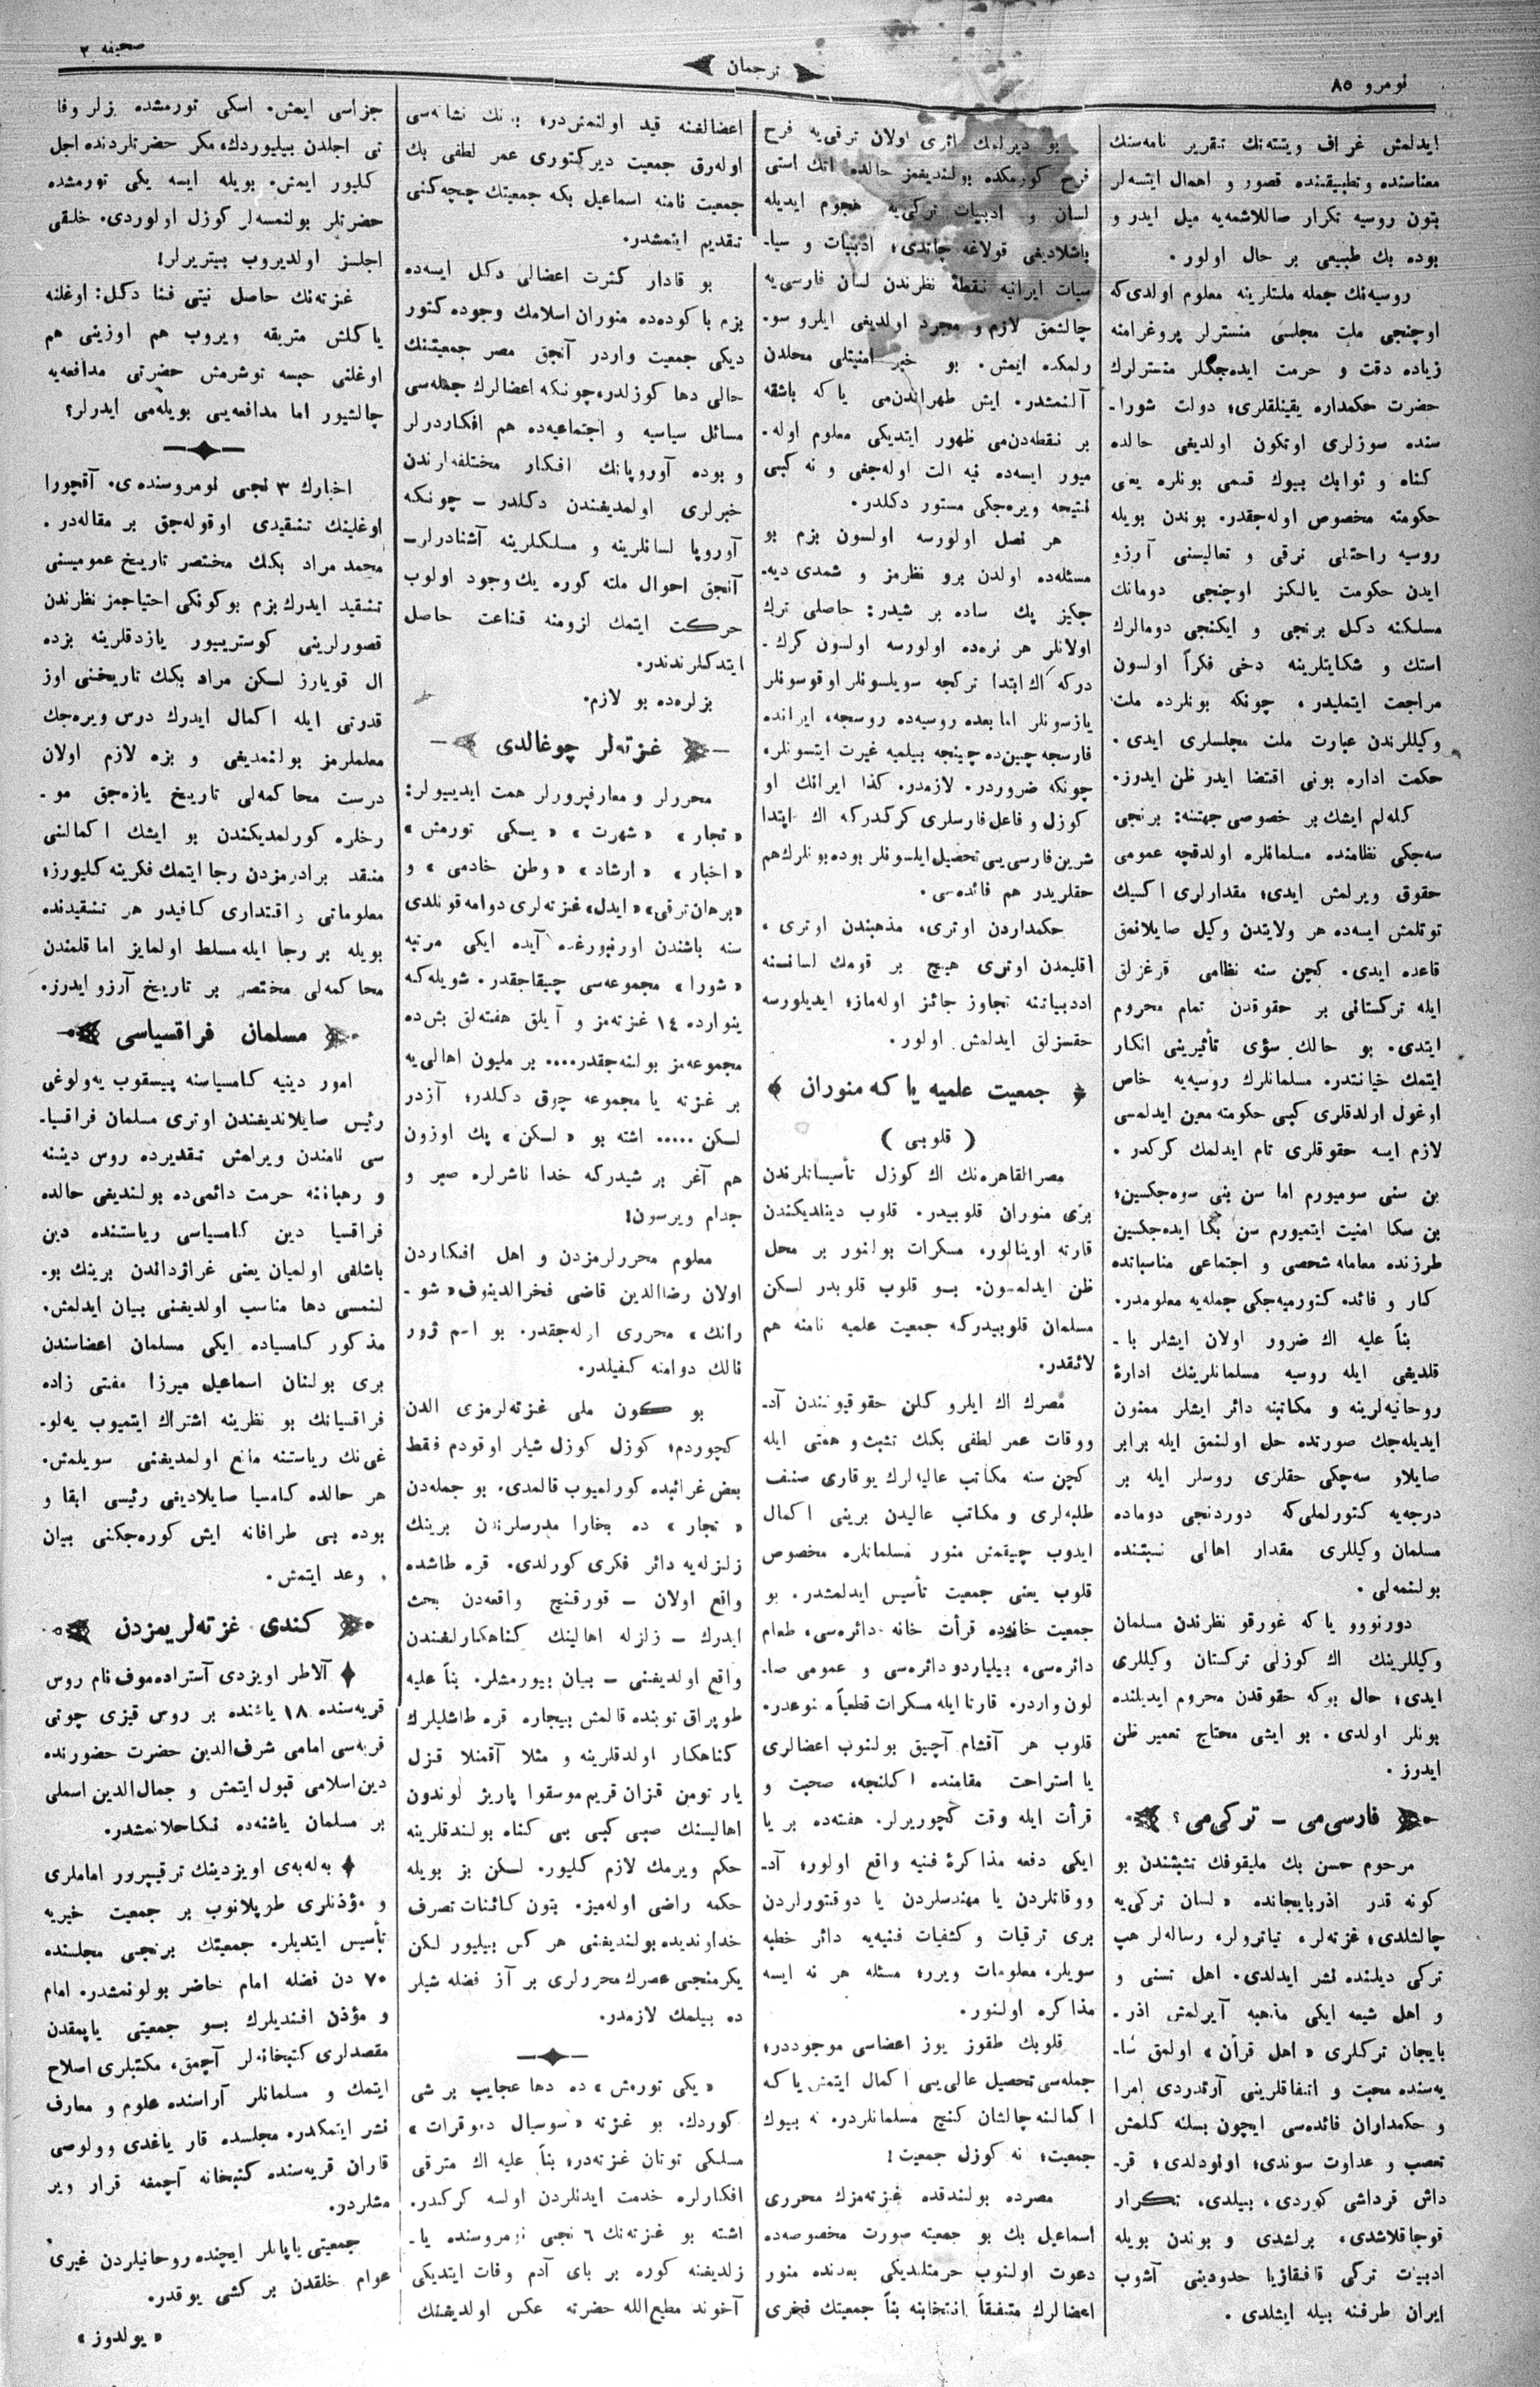 نومرو ٨٥
ترجمان
صحیفه ٣
ایدلمش غراف ویتته‌نك تقریر نامه‌سنك
معناسنده و تطبیقنده قصور و اهمال ایتسه‌لر
بتون روسیه تکرار صاللاشمه‌یه میل ایدر و
بوده بك طبیعی بر حال اولور.
روسیه‌نك جمله ملتلرینه معلوم اولدی‌که
اوچنجی ملت مجلسی منسترلر پروغرامنه
زیاده دقت و حرمت ایده‌جگلر منسترلرك
حضرت حکمداره یقینلقلری؛ دولت شورا-
سنده سوزلری اوتکون اولدیغی حالده
کناه و ثوابك بیوك قسمی بونلره یعنی
حکومته مخصوص اوله‌جقدر. بوندن بویله
روسیه راحتلی ترقی و تعالیسنی آرزو
ایدن حکومت یالکز اوچنجی دومانك
مسلکنه دکل برنجی و ایکنجی دومالرك
استك و شکایتلرینه دخی فکراً اولسون
مراجعت ایتملیدر، چونکه بونلرده ملت
وکیللرندن عبارت ملت مجلسلری ایدی.
حکمت اداره بونی اقتضا ایدر ظن ایدرز.
کله‌لم ایشك بر خصوصی جهتنه: برنجی
سه‌جکی نظامنده مسلمانلره اولدقچه عمومی
حقوق ویرلمش ایدی؛ مقدارلری اکسیك
توتلمش ایسه‌ده هر ولایتدن وکیل صایلانمق
قاعده ایدی. کچن سنه نظامی قرغزلق
ایله ترکستانی بر حقوقدن تمام محروم
ایتدی. بو حالك سؤی تأثیرینی انکار
ایتمك خیانتدر. مسلمانلرك روسیه‌یه خاص
اوغول اولدقلری کبی حکومته معین ایدلمسی
لازم ایسه حقوقلری تام ایدلمك کرکدر.
بن سنی سومیورم اما سن بنی سوه‌جکسین؛
بن سکا امنیت ایتمیورم سن بکا ایده‌جکسین
طرزنده معامله شخصی و اجتماعی مناسباتده
کار و فائده کتورمیه‌جکی جمله‌یه معلومدر.
بناً علیه اك ضرور اولان ایشلر با-
قلدیغی ایله روسیه مسلمانلرینك ادارۀ
روحانیه‌لرینه و مکاتبنه دائر ایشلر ممنون
ایدیله‌جك صورتده حل اولنمق ایله برابر
صایلاو سه‌چکی حقلری روسلر ایله بر
درجه‌یه کتورلملی‌که دوردنجی دوماده
مسلمان وکیللری مقدار اهالی نسبتنده
بولنمه‌لی.
دورنووو یا که غورقو نظرندن مسلمان
وکیللرینك اك کوزلی ترکستان وکیللری
ایدی؛ حال بوکه حقوقدن محروم ایدیلنده
بونلر اولدی. بو ایشی محتاج تعمیر ظن
ایدرز.
فارسی‌می - ترکی‌می؟
مرحوم حسن بك ملیقوفك تشبثندن بو
کونه قدر اذربایجانده «لسان ترکی‌یه
چالشلدی؛ غزته‌لر، تیاترولر، رساله‌لر هپ
ترکی دیلنده نشر ایدلدی. اهل تسنی و
و اهل شیعه ایکی مذهبه آیرلمش اذر.
بایجان ترکلری «اهل قرأن» اولمق سا-
یه‌سنده محبت و اتفاقلرینی آرتدردی امرا
و حکمداران فائده‌سی ایچون بسلنه کلمش
تعصب و عداوت سوندی؛ اونودلدی؛ قر-
داش قرداشی کوردی، بیلدی، تکرار
قوجاقلاشدی، برلشدی و بوندن بویله
ادبیات ترکی قافقازیا حدودینی آشوب
ایران طرفنه بیله ایشلدی.
بو دیرلمك اثری اولان ترقی‌یه فرح
فرح کورمکده بولندیغمز حالده انك استی
لسان و ادبیات ترکی‌یه هجوم ایدیله
باشلادیغی قولاغه چاندی؛ ادبیات و سیا-
سیات ایرانیه نقطۀ نظرندن لسان فارسی‌یه
چالشمق لازم و مجرد اولدیغی ایلرو سو-
رلمکده ایمش. بو خبر امنیتلی محلدن
آلنمشدر. ایش طهراندن‌می یا که باشقه
بر نقطه‌دن‌می ظهور ایتدیکی معلوم اوله-
میور ایسه‌ده نیه الت اوله‌جغی و نه کبی
نتیجه ویره‌جکی مستور دکلدر.
هر نصل اولورسه اولسون بزم بو
مسئله‌ده اولدن برو نظرمز و شمدی دیه-
جکیز پك ساده بر شیدر: حاصلی ترك
اولانلر هر نره‌ده اولورسه اولسون کرك-
درکه اك ابتدا ترکجه سویلسونلر اوقوسونلر
یازسونلر اما بعده روسیه‌ده روسجه، ایرانده
فارسجه چین‌ده چینجه بیلمیه غیرت ایتسونلر،
چونکه ضروردر. لازمدر. کذا ایرانك او
کوزل و فاعل فارسلری کرکدرکه اك ابتدا
شرین فارسی‌یی تحصیل ایلسونلر بوده بونلرك هم
حقلریدر هم فائده‌سی.
حکمداردن اوتری، مذهبندن اوتری،
اقلیمدن اوتری هیچ بر قومك لسانسنه
ادبیاتنه تجاوز جائز اوله‌ماز؛ ایدیلورسه
حقسزلق ایدلمش اولور.
جمعیت علمیه یا که منوران
( قلوبی )
مصرالقاهره‌نك اك کوزل تأسیساتلرندن
بری منوران قلوبیدر. قلوب دینلدیکندن
قارته اوینالور، مسکرات بولنور بر محل
ظن ایدلمسون. بو قلوب قلوبدر لکن
مسلمان قلوبیدرکه جمعیت علمیه نامنه هم
لائقدر.
مصرك اك ایلرو کلن حقوقیونندن آد-
ووقات عمر لطفی بکك تشبث و همتی ایله
کچن سنه مکاتب عالیه‌لرك یوقاری صنف
طلبه‌لری و مکاتب عالیدن برینی اکمال
ایدوب چیقمش منور مسلمانلره مخصوص
قلوب یعنی جمعیت تأسیس ایدلمشدر. بو
جمعیت خانه‌ده قرأت خانه دائره‌سی، طعام
دائره‌سی، بیلیاردو دائره‌سی و عمومی صا-
لون واردر. قارتا ایله مسکرات قطعیاً ممنوعدر.
قلوب هر آقشام آچیق بولنوب اعضالری
یا استراحت مقامنده اکلنجه، صحبت و
قرأت ایله وقت کچوریرلر. هفته‌ده بر یا
ایکی دفعه مذاکرۀ فنیه واقع اولور؛ آد-
ووقاتلردن یا مهندسلردن یا دوقتورلردن
بری ترقیات و کشفیات فنیه‌یه دائر خطبه
سویلر، معلومات ویرر؛ مسئله هر نه ایسه
مذاکره اولنور.
قلوبك طقوز یوز اعضاسی موجوددر؛
جمله‌سی تحصیل عالی‌یی اکمال ایتمش یا که
اکمالنه چالشان کنج مسلمانلردر. نه بیوك
جمعیت؛ نه کوزل جمعیت!
مصرده بولندقده غزته‌مزك محرری
اسماعیل بك بو جمعیته صورت مخصوصه‌ده
دعوت اولنوب حرمتلندیکی بعدنده منور
اعضالرك متفقاً انتخابنه بناً جمعیتك فخری
اعضالغنه قید اولنمش‌در؛ بونك نشانه‌سی
اوله‌رق جمعیت دیرکتوری عمر لطفی بك
جمعیت نامنه اسماعیل بکه جمعیتك چچه‌کنی
تقدیم ایتمشدر.
بو قادار کثرت اعضالی دکل ایسه‌ده
بزم باکوده‌ده منوران اسلامك وجوده کتور
دیکی جمعیت واردر آنجق مصر جمعیتنك
حالی دها کوزلدر، چونکه اعضالرك جمله‌سی
مسائل سیاسیه و اجتماعیه‌ده هم افکاردرلر
و بوده آوروپانك افکار مختلفه‌لرندن
خبرلری اولمدیغندن دکلدر - چونکه
آوروپا لسانلرینه و مسلکلرینه آشنادرلر-
آنجق احوال ملته کوره یك‌وجود اولوب
حرکت ایتمك لزومنه قناعت حاصل
ایتدکلرندندر.
بزلره‌ده بو لازم.
غزته‌لر چوغالدی
محررلر و معارفپرورلر همت ایدییولر:
«تجار» «شهرت» «یسکی تورمش»
«اخبار» «ارشاد» «وطن خادمی» و
«برهان ترقی» «ایدل» غزته‌لری دوامه قونلدی
سنه باشندن اورنبورغده آیده ایکی مرتبه
«شورا» مجموعه‌سی چیقاجقدر. شویله که
ینوارده ١٤ غزته‌مز و آیلق هفته‌لق بش‌ده
مجموعه‌مز بولنه‌جقدر.... بر ملیون اهالی‌یه
بر غزته یا مجموعه چوق دکلدر؛ آزدر
لکن..... اشته بو «لکن» پك اوزون
هم آغر بر شیدرکه خدا ناشرلره صبر و
جدام ویرسون!
معلوم محررلرمزدن و اهل افکاردن
اولان رضاالدین قاضی فخرالدینوف «شو-
رانك» محرری اوله‌جقدر. بو اسم ژور
نالك دوامنه کفیلدر.
بو کون ملی غزته‌لرمزی الدن
کچوردم؛ کوزل کوزل شیلر اوقودم فقط
بعض غرائبده کورلمیوب قالمدی. بو جمله‌دن
«تجار» ده بخارا مدرسلرندن برینك
زلزله‌یه دائر فکری کورلدی. قره طاشده
واقع اولان - قورقنچ واقعه‌دن بحث
ایدرك - زلزله اهالینك کناهکارلغندن
واقع اولدیغنی - بیان بیورمشلر. بناً علیه
طوپراق توبنده قالمش بیچاره قره طاشلیلرك
کناهکار اولدقلرینه و مثلا آقمنلا قزل
یار تومن قزان قریم موسقوا پاریژ لوندون
اهالیسنك صبی کبی بی کناه بولندقلرینه
حکم ویرمك لازم کلیور. لکن بز بویله
حکمه راضی اوله‌میز. بتون کائنات تصرف
خداوندیده بولندیغنی هر کس بیلیور لکن
یکرمنجی عصرك محررلری بر آز فضله شیلر
ده بیلمك لازمدر.
«یکی تورمش» ده دها عجایب بر شی
کوردك. بو غزته «سوسیال دموقرات»
مسلکی توتان غزته‌در؛ بناً علیه اك مترقی
افکارلره خدمت ایدنلردن اولسه کرکدر.
اشته بو غزته‌نك ٦ نجی نومروسنده یا-
زلدیغنه کوره بر بای آدم وفات ایتدیکی
آخوند مطیع‌الله حضرته عکس اولدیغنك
جزاسی ایمش. اسکی تورمشده بزلر وفا
تی اجلدن بیلیوردك، مکر حضرتلردنده اجل
کلیور ایمش. بویله ایسه یکی تورمشده
حضرتلر بولنمسه‌لر کوزل اولوردی. خلقی
اجلسز اولدیروب بیتریرلر!
غزته‌نك حاصل نیتی فنا دکل: اوغلنه
یاکلش متریقه ویروب هم اوزینی هم
اوغلنی حبسه توشرمش حضرتی مدافعه‌یه
چالشیور اما مدافعه‌یی بویله‌می ایدرلر؟
اخبارك ٣ نجی نومروسنده‌ی. آقچورا
اوغلینك تنقیدی اوقوله‌جق بر مقاله‌در.
محمد مراد بکك مختصر تاریخ عمومیسنی
تنقید ایدرك بزم بوکونکی احتیاجمز نظرندن
قصورلرینی کوستریبیور یازدقلرینه بزده
ال قویارز لکن مراد بکك تاریخنی اوز
قدرتی ایله اکمال ایدرك درس ویره‌جك
معلملرمز بولنمدیغی و بزه لازم اولان
درست محاکمه‌لی تاریخ یازه‌جق مو-
رخلره کورلمدیکندن بو ایشك اکمالنی
منقد برادرمزدن رجا ایتمك فکرینه کلیورز؛
معلوماتی و اقتداری کافیدر هر تنقیدنده
بویله بر رجا ایله مسلط اولمایز اما قلمندن
محاکمه‌لی مختصر بر تاریخ آرزو ایدرز.
مسلمان فراقسیاسی
امور دینیه کامسیاسنه پیسقوب یه‌ولوغی
رئیس صایلاندیغندن اوتری مسلمان فراقسیا-
سی نامندن ویرلمش تقدیرده روس دیننه
و رهبانه حرمت دائمی‌ده بولندیغی حالده
فراقسیا دین کامسیاسی ریاستنده دین
باشلغی اولمیان یعنی غراژداندن برینك بو-
لنمسی دها مناسب اولدیغنی بیان ایدلمش.
مذکور کامسیاده ایکی مسلمان اعضاسندن
بری بولنان اسماعیل میرزا مفتی زاده
فراقسیانك بو نظرینه اشتراك ایتمیوب یه‌لو-
غی‌نك ریاستنه مانع اولمدیغنی سویلمش.
هر حالده کامسیا صایلادیغی رئیسی ابقا و
بوده بی طرفانه ایش کوره‌جکنی بیان
و وعد ایتمش.
کندی غزته‌لریمزدن
آلاطر اویزدی آستراده‌موف نام روس
قریه‌سنده ١٨ یاشنده بر روس قیزی چوتی
قریه‌سی امامی شرف‌الدین حضرت حضورنده
دین اسلامی قبول ایتمش و جمال‌الدین اسملی
بر مسلمان یاشنه‌ده نکاحلانمشدر.
به‌له‌به‌ی اویزدینك ترقیپرور اماملری
و مؤذنلری طوپلانوب بر جمعیت خیریه
تأسیس ایتدیلر. جمعیتك برنجی مجلسنده
٧٠ دن فضله امام حاضر بولونمشدر. امام
و مؤذن افندیلرك بو جمعیتی یاپمقدن
مقصدلری کتبخانه‌لر آچمق، مکتبلری اصلاح
ایتمك و مسلمانلر آراسنده علوم و معارف
نشر ایتمکدر، مجلسده قار یاغدی وولوصی
قاران قریه‌سنده کتبخانه آچمغه قرار ویر
مشلردر.
جمعیتی یاپانلر ایچنده روحانیلردن غیری
عوام خلقدن بر کشی یوقدر.
«یولدوز»